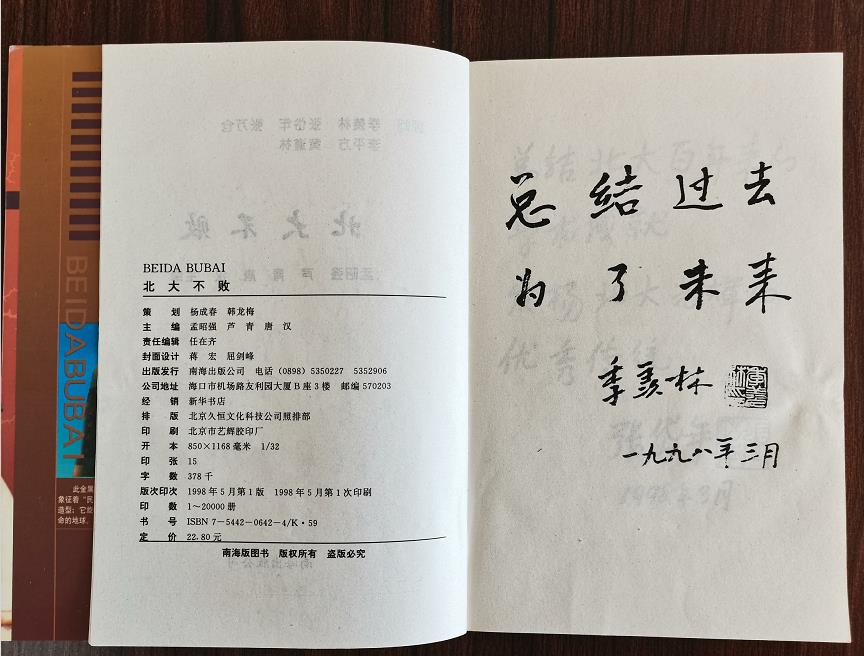 BEIDABUBAI
此金属
象征着“民
造型；它给
命的地球。
BEIDA BUBAI
北大不败
策 划 杨成春 韩龙梅
主 编 孟昭强 芦 青 唐 汉
责任编辑 任在齐
封面设计 蒋 宏 屈剑峰
出版发行 南海出版公司 电话（0898）5350227 5352906
公司地址 海口市机场路友利园大厦B座3楼 邮编570203
经 销 新华书店
排 版 北京久恒文化科技公司照排部
印 刷 北京市艺辉胶印厂
开 本 850×1168毫米 1/32
印 张 15
字 数 378千
版次印次 1998年5月第1版 1998年5月第1次印刷
印 数 1～20000册
书 号 ISBN 7-5442-0642-4/K·59
定 价 22.80元
南海版图书 版权所有 盗版必究
总结过去
为了未来
季羡林
一九九八年三月